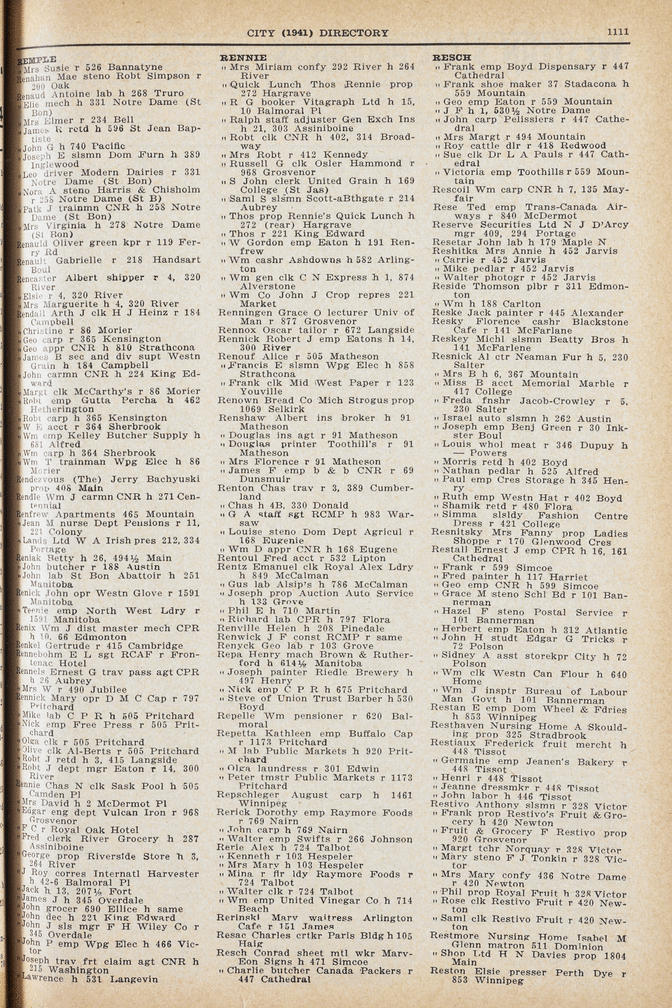 CITY (1941) DIRECTORY 1111
REMPLE
" Mrs Susie r 526 Bannatyne
Renahan Mae steno Robt Simpson r
200 Oak
Renaud Antoine lab h 268 Truro
" Elie mech h 331 Notre Dame (St
Bon)
" Mrs Elmer r 234 Bell
" James R retd h 596 St Jean Bap-
tiste
" John G h 740 Pacific
" Joseph E slsmn Dom Furn h 389
Inglewood
" Leo driver Modern Dairies r 331
Notre Dame (St Bon)
" Nora A steno Harris & Chisholm
r 258 Notre Dame (St B)
" Patk J trainmn CNR h 258 Notre
Dame (St Bon)
" Mrs Virginia h 278 Notre Dame
(St Bon)
Renauld Oliver green kpr r 119 Fer-
ry Rd
Renault Gabrielle r 218 Handsart
Boul
Rencaster Albert shipper r 4, 320
River
" Elsie r 4, 320 River
" Mrs Marguerite h 4, 320 River
Rendall Arth J clk H J Heinz r 184
Campbell
" Christine r 86 Morier
" Geo carp r 365 Kensington
" Geo appr CNR h 810 Strathcona
" James B sec and div supt Westn
Grain h 184 Campbell
" John carmn CNR h 224 King Ed-
ward
" Margt clk McCarthy's r 86 Morier
" Robt emp Gutta Percha h 462
Hetherington
" Robt carp h 365 Kensington
" W E acct r 364 Sherbrook
" Wm emp Kelley Butcher Supply h
681 Alfred
" Wm carp h 364 Sherbrook
" Wm T trainman Wpg Elec h 86
Morier
Rendezvous (The) Jerry Bachyuski
prop 406 Main
Rendle Wm J carmn CNR h 271 Cen-
tennial
Renfrew Apartments 465 Mountain
" Jean M nurse Dept Pensions r 11,
221 Colony
" Lands Ltd W A Irish pres 212, 334
Portage
Reniak Betty h 26, 494½ Main
" John butcher r 188 Austin
" John lab St Bon Abattoir h 251
Manitoba
Renick John opr Westn Glove r 1591
Manitoba
" Teenie emp North West Ldry r
1591 Manitoba
Renix Wm J dist master mech CPR
h 10, 66 Edmonton
Renkel Gertrude r 415 Cambridge
Rennebohm E L sgt RCAF r Fron-
tenac Hotel
Rennels Ernest G trav pass agt CPR
h 26 Aubrey
" Mrs W r 490 Jubilee
Rennick Mary opr D M C Cap r 797
Pritchard
" Mike lab C P R h 505 Pritchard
" Nick emp Free Press r 505 Prit-
chard
" Olga clk r 505 Pritchard
" Olive clk Al-Berts r 505 Pritchard
" Robt J retd h 3, 415 Langside
" Robt J dept mgr Eaton r 14, 300
River
Rennie Chas N clk Sask Pool h 505
Camden Pl
" Mrs David h 2 McDermot Pl
" Edgar eng dept Vulcan Iron r 968
Grosvenor
" F C r Royal Oak Hotel
" Fred clerk River Grocery h 287
Assiniboine
" George prop Riverside Store h 3,
264 River
" J Roy corres Internatl Harvester
h 42-6 Balmoral Pl
" Jack h 13, 207½ Fort
" James J h 345 Overdale
" John grocer 690 Ellice h same
" John dec h 221 King Edward
" John J sls mgr F H Wiley Co r
345 Overdale
" John P emp Wpg Elec h 466 Vic-
tor
" Joseph trav frt claim agt CNR h
215 Washington
" Lawrence h 531 Langevin
RENNIE
" Mrs Miriam confy 292 River h 264
River
" Quick Lunch Thos Rennie prop
272 Hargrave
" R G booker Vitagraph Ltd h 15,
10 Balmoral Pl
" Ralph staff adjuster Gen Exch Ins
h 21, 303 Assiniboine
" Robt clk CNR h 402, 314 Broad-
way
" Mrs Robt r 412 Kennedy
" Russell G clk Osler Hammond r
968 Grosvenor
" S John clerk United Grain h 169
College (St Jas)
" Saml S slsmn Scott-aBthgate r 214
Aubrey
" Thos prop Rennie's Quick Lunch h
272 (rear) Hargrave
" Thos r 221 King Edward
" W Gordon emp Eaton h 191 Ren-
frew
" Wm cashr Ashdowns h 582 Arling-
ton
" Wm gen clk C N Express h 1, 874
Alverstone
" Wm Co John J Crop repres 221
Market
Renningen Grace O lecturer Univ of
Man r 877 Grosvenor
Rennox Oscar tailor r 672 Langside
Rennick Robert J emp Eatons h 14,
300 River
Renouf Alice r 505 Matheson
" Francis E slsmn Wpg Elec h 858
Strathcona
" Frank clk Mid West Paper r 123
Youville
Renown Bread Co Mich Strogus prop
1069 Selkirk
Renshaw Albert ins broker h 91
Matheson
" Douglas ins agt r 91 Matheson
" Douglas printer Toothill's r 91
Matheson
" Mrs Florence r 91 Matheson
" James F emp b & b CNR r 69
Dunsmuir
Renton Chas trav r 3, 389 Cumber-
land
" Chas h 4B, 330 Donald
" G A staff sgt RCMP h 983 War-
saw
" Louise steno Dom Dept Agricul r
168 Eugenie
" Wm D appr CNR h 168 Eugene
Rentoul Fred acct r 532 Lipton
Rentz Emanuel clk Royal Alex Ldry
h 849 McCalman
" Gus lab Alsip's h 786 McCalman
" Joseph prop Auction Auto Service
h 133 Grove
" Phil E h 710 Martin
" Richard lab CPR h 797 Flora
Renville Helen h 208 Pinedale
Renwick J F const RCMP r same
Renyck Geo lab r 103 Grove
Repa Henry mach Brown & Ruther-
ford h 614½ Manitoba
" Joseph painter Riedle Brewery h
497 Henry
" Nick emp C P R h 675 Pritchard
" Steve of Union Trust Barber h 530
Boyd
Repelle Wm pensioner r 620 Bal-
moral
Repetta Kathleen emp Buffalo Cap
r 1173 Pritchard
" M lab Public Markets h 920 Prit-
chard
" Olga laundress r 301 Edwin
" Peter tmstr Public Markets r 1173
Pritchard
Repschleger August carp h 1461
Winnipeg
Rerick Dorothy emp Raymore Foods
r 769 Nairn
" John carp h 769 Nairn
" Walter emp Swifts r 266 Johnson
Rerie Alex h 724 Talbot
" Kenneth r 103 Hespeler
" Mrs Mary h 103 Hespeler
" Mina r flr ldy Raymore Foods r
724 Talbot
" Walter clk r 724 Talbot
" Wm emp United Vinegar Co h 714
Beach
Rerinski Mary waitress Arlington
Cafe r 151 James
Resac Charles crtkr Paris Bldg h 105
Haig
Resch Conrad sheet mtl wkr Marv-
Eon Signs h 471 Simcoe
" Charlie butcher Canada Packers r
447 Cathedral
RESCH
" Frank emp Boyd Dispensary r 447
Cathedral
" Frank shoe maker 37 Stadacona h
559 Mountain
" Geo emp Eaton r 559 Mountain
" J F h 1, 530½ Notre Dame
" John carp Pelissiers r 447 Cathe-
dral
" Mrs Margt r 494 Mountain
" Roy cattle dlr r 418 Redwood
" Sue clk Dr L A Pauls r 447 Cath-
edral
" Victoria emp Toothills r 559 Moun-
tain
Rescoil Wm carp CNR h 7, 135 May-
fair
Rese Ted emp Trans-Canada Air-
ways r 840 McDermot
Reserve Securities Ltd N J D'Arcy
mgr 409, 294 Portage
Resetar John lab h 179 Maple N
Reshitka Mrs Annie h 452 Jarvis
" Carrie r 452 Jarvis
" Mike pedlar r 452 Jarvis
" Walter photogr r 452 Jarvis
Reside Thomson plbr r 311 Edmon-
ton
" Wm h 188 Carlton
Reske Jack painter r 445 Alexander
Resky Florence cashr Blackstone
Cafe r 141 McFarlane
Reskey Michl slsmn Beatty Bros h
141 McFarlene
Resnick Al ctr Neaman Fur h 5, 230
Salter
" Mrs B h 6, 367 Mountain
" Miss B acct Memorial Marble r
417 College
" Freda fnshr Jacob-Crowley r 5,
230 Salter
" Israel auto slsmn h 262 Austin
" Joseph emp Benj Green r 30 Ink-
ster Boul
" Louis whol meat r 346 Dupuy h
— Powers
" Morris retd h 402 Boyd
" Nathan pedlar h 525 Alfred
" Paul emp Cres Storage h 345 Hen-
ry
" Ruth emp Westn Hat r 402 Boyd
" Shamik retd r 480 Flora
" Simma slsldy Fashion Centre
Dress r 421 College
Resnitsky Mrs Fanny prop Ladies
Shoppe r 170 Glenwood Cres
Restall Ernest J emp CPR h 16, 161
Cathedral
" Frank r 599 Simcoe
" Fred painter h 117 Harriet
" Geo emp CNR h 599 Simcoe
" Grace M steno Schl Bd r 101 Ban-
nerman
" Hazel F steno Postal Service r
101 Bannerman
" Herbert emp Eaton h 312 Atlantic
" John H studt Edgar G Tricks r
72 Polson
" Sidney A asst storekpr City h 72
Polson
" Wm clk Westn Can Flour h 640
Home
" Wm J insptr Bureau of Labour
Man Govt h 101 Bannerman
Restan E emp Dom Wheel & Fdries
h 853 Winnipeg
Resthaven Nursing Home A Skould-
ing prop 325 Stradbrook
Restiaux Frederick fruit mercht h
448 Tissot
" Germaine emp Jeanen's Bakery r
448 Tissot
" Henri r 448 Tissot
" Jeanne dressmkr r 448 Tissot
" John labor h 446 Tissot
Restivo Anthony slsmn r 328 Victor
" Frank prop Restivo's Fruit & Gro-
cery h 420 Newton
" Fruit & Grocery F Restivo prop
920 Grosvenor
" Margt tchr Norquay r 328 Victor
" Mary steno F J Tonkin r 328 Vic-
tor
" Mrs Mary confy 436 Notre Dame
r 420 Newton
" Phil prop Royal Fruit h 328 Victor
" Rose clk Restivo Fruit r 420 New-
ton
" Saml clk Restivo Fruit r 420 New-
ton
Restmore Nursing Home Isabel M
Glenn matron 511 Dominion
" Shop Ltd H N Davies prop 1804
Main
Reston Elsie presser Perth Dye r
853 Winnipeg